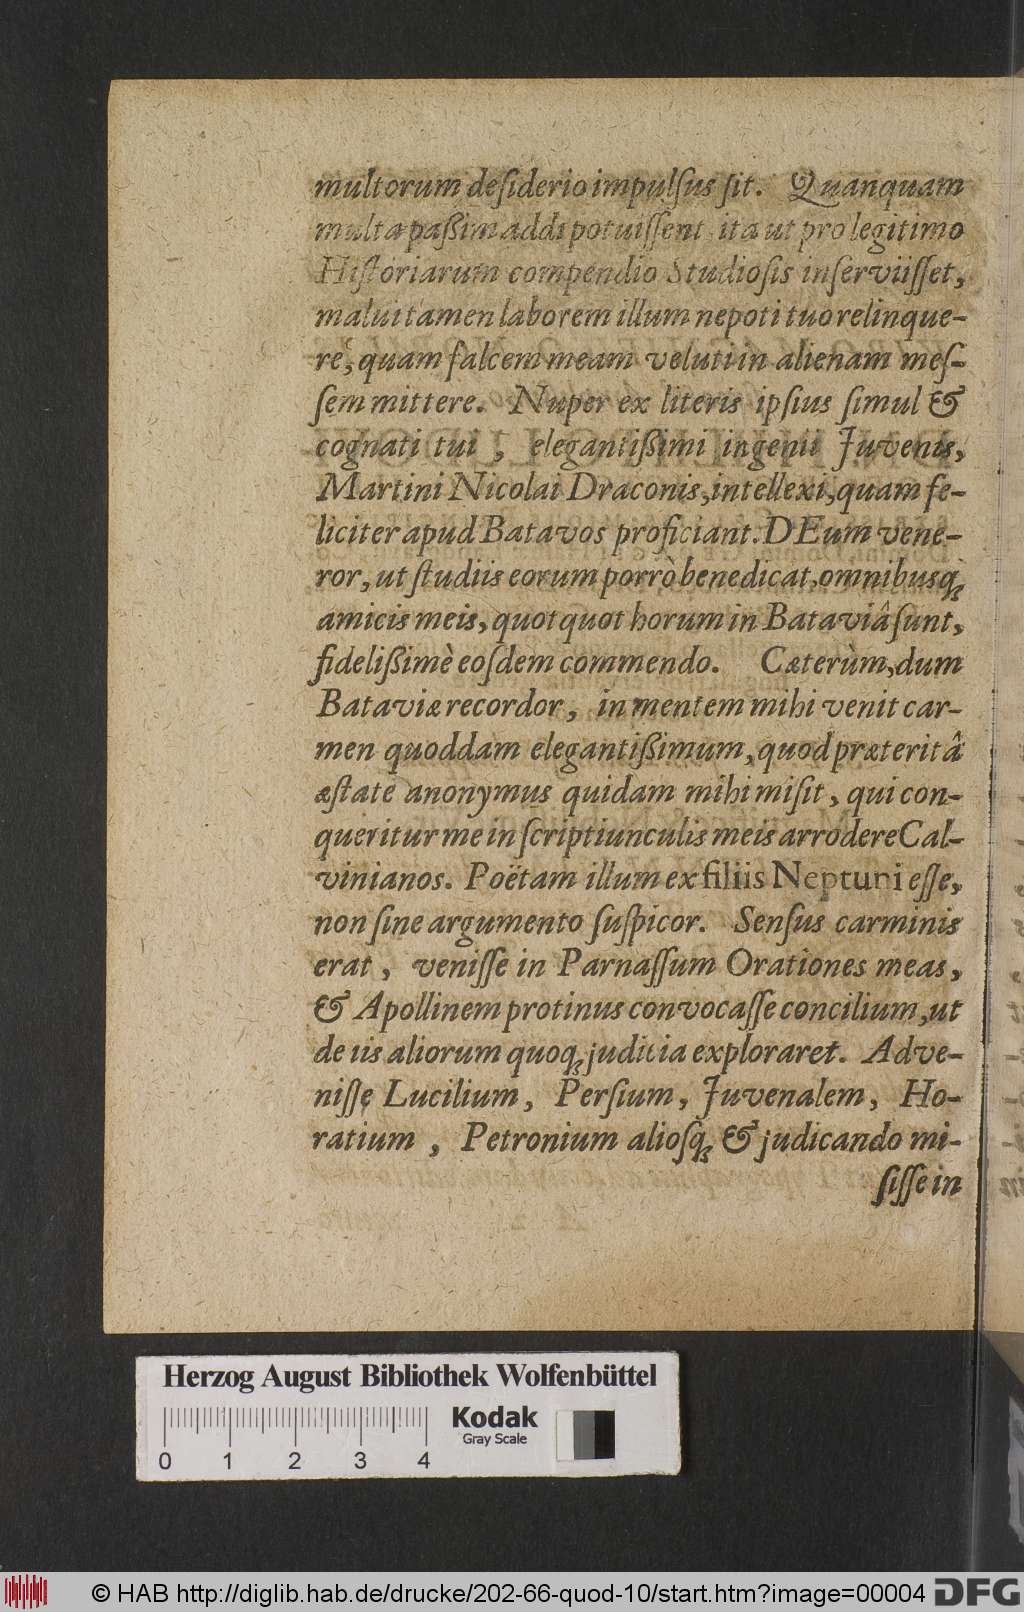 multorum deſiderio impulſus ſit. Quanquam
multa paßim addi potuiſſent ita ut pro legitimo
Hiſtoriarum compendio Studioſis inſerviiſſet,
malui tamen laborem illum nepoti tuo relinque-
re, quam falcem meam veluti in alienam meſ-
ſem mittere. Nuper ex literis ipſius ſimul &
cognati tui, elegantißimi ingenii Juvenis,
Martini Nicolai Draconis, intellexi, quam fe-
liciter apud Batavos proficiant. DEum vene-
ror, ut ſtudiis eorum porrò benedicat, omnibusq́;
amicis meis, quotquot horum in Bataviâ ſunt,
fidelißimè eoſdem commendo. Cæterùm, dum
Bataviæ recordor, in mentem mihi venit car-
men quoddam elegantißimum, quod præteritâ
æſtate anonymus quidam mihi miſit, qui con-
queritur me in ſcriptiunculis meis arrodere Cal-
vinianos. Poëtam illum ex filiis Neptuni eſſe,
non ſine argumento ſuſpicor. Senſus carminis
erat, veniſſe in Parnaſſum Orationes meas,
& Apollinem protinus convocaſſe concilium, ut
de iis aliorum quoq; juditia exploraret. Adve-
niſſe Lucilium, Perſium, Juvenalem, Ho-
ratium, Petronium alioſq; & judicando mi-
ſiſſe in
Herzog August Bibliothek Wolfenbüttel
Kodak
Gray Scale
0 1 2 3 4
© HAB http://diglib.hab.de/drucke/202-66-quod-10/start.htm?image=00004
DFG